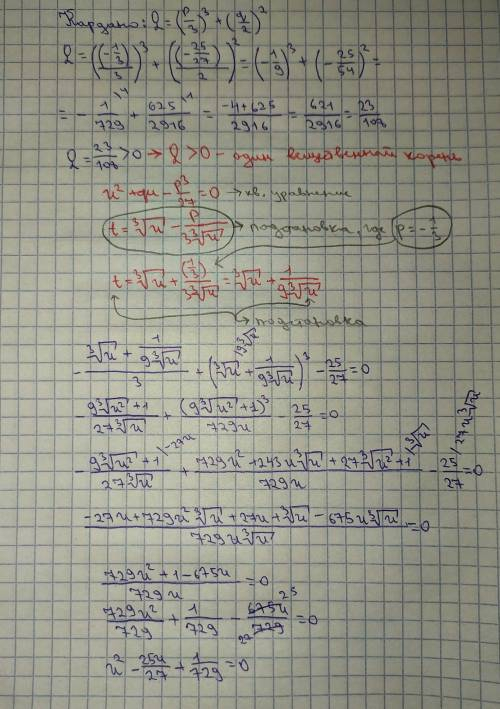 Кардано: Q = (p/3)³ + (q/2)²
Q = ((-1/3)/3)³ + ((-25/27)/2)² = (-1/9)³ + (-25/54)² =
= -1/729 \4 + 625/2916 \1 = (-4+625)/2916 = 621/2916 = 23/108
Q = 23/108 > 0 → Q > 0 - один вещественный корень
u² + qu - p³/27 = 0 → кв. уравнение
t = ³√u - p/(3³√u) → подстановка, где p = -1/3
t = ³√u + (1/3)/(3³√u) = ³√u + 1/(9³√u)
→ подстановка
-(³√u + 1/(9³√u))/3 + (³√u \9³√u + 1/(9³√u))³ - 25/27 = 0
-(9³√u² + 1)/(27³√u) + (9³√u² + 1)³/(729u) - 25/27 = 0
-(9³√u² + 1)/(27³√u) \-27u + (729u² + 243u³√u + 27³√u² + 1)/(729u) \³√u - 25/27 \27u³√u = 0
(-27u + 729u²³√u + 27u + ³√u - 675u³√u)/(729u³√u) = 0
(729u² + 1 - 675u)/(729u) = 0
729u²/729 + 1/729 - 675u/729 25 27 = 0
u² - 25u/27 + 1/729 = 0